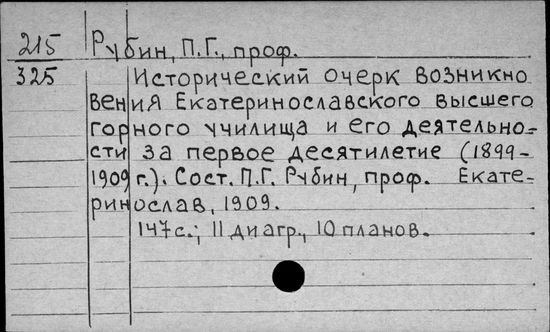 215 Рубин, П.Г., проф.
325 Исторический очерк возникно
вения Екатеринославского высшего
горного училища и его деятельно-
сти за первое десятилетие (1899-
1909 г.). Сост. П.Г. Рубин, проф. Екате-
ринослав, 1909.
147 с.; 11 диагр., 10 планов.